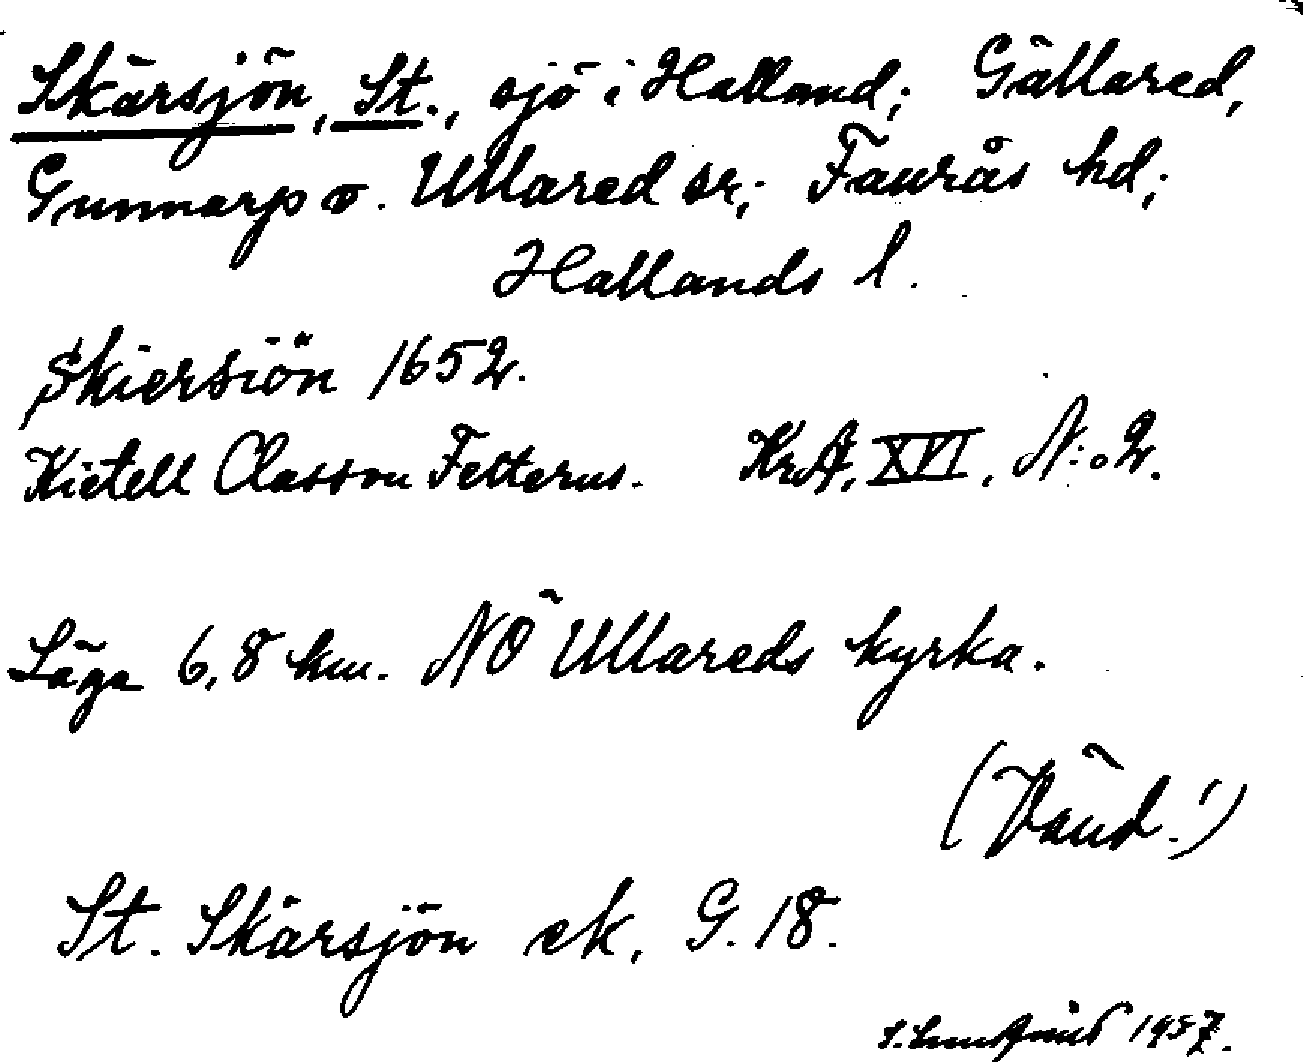 Skärsjön, St., sjö i Halland; Gällared,
Gunnarp o. Ullared sr; Faurås hd;
Hallands l.
Skiersiön 1652.
Kietell Classon Felterus. KrA, XVI, N:o 2.
Läge 6,8 km. NÖ Ullareds kyrka.
(Vänd!)
St. Skärsjön ek. G. 18.
1937.